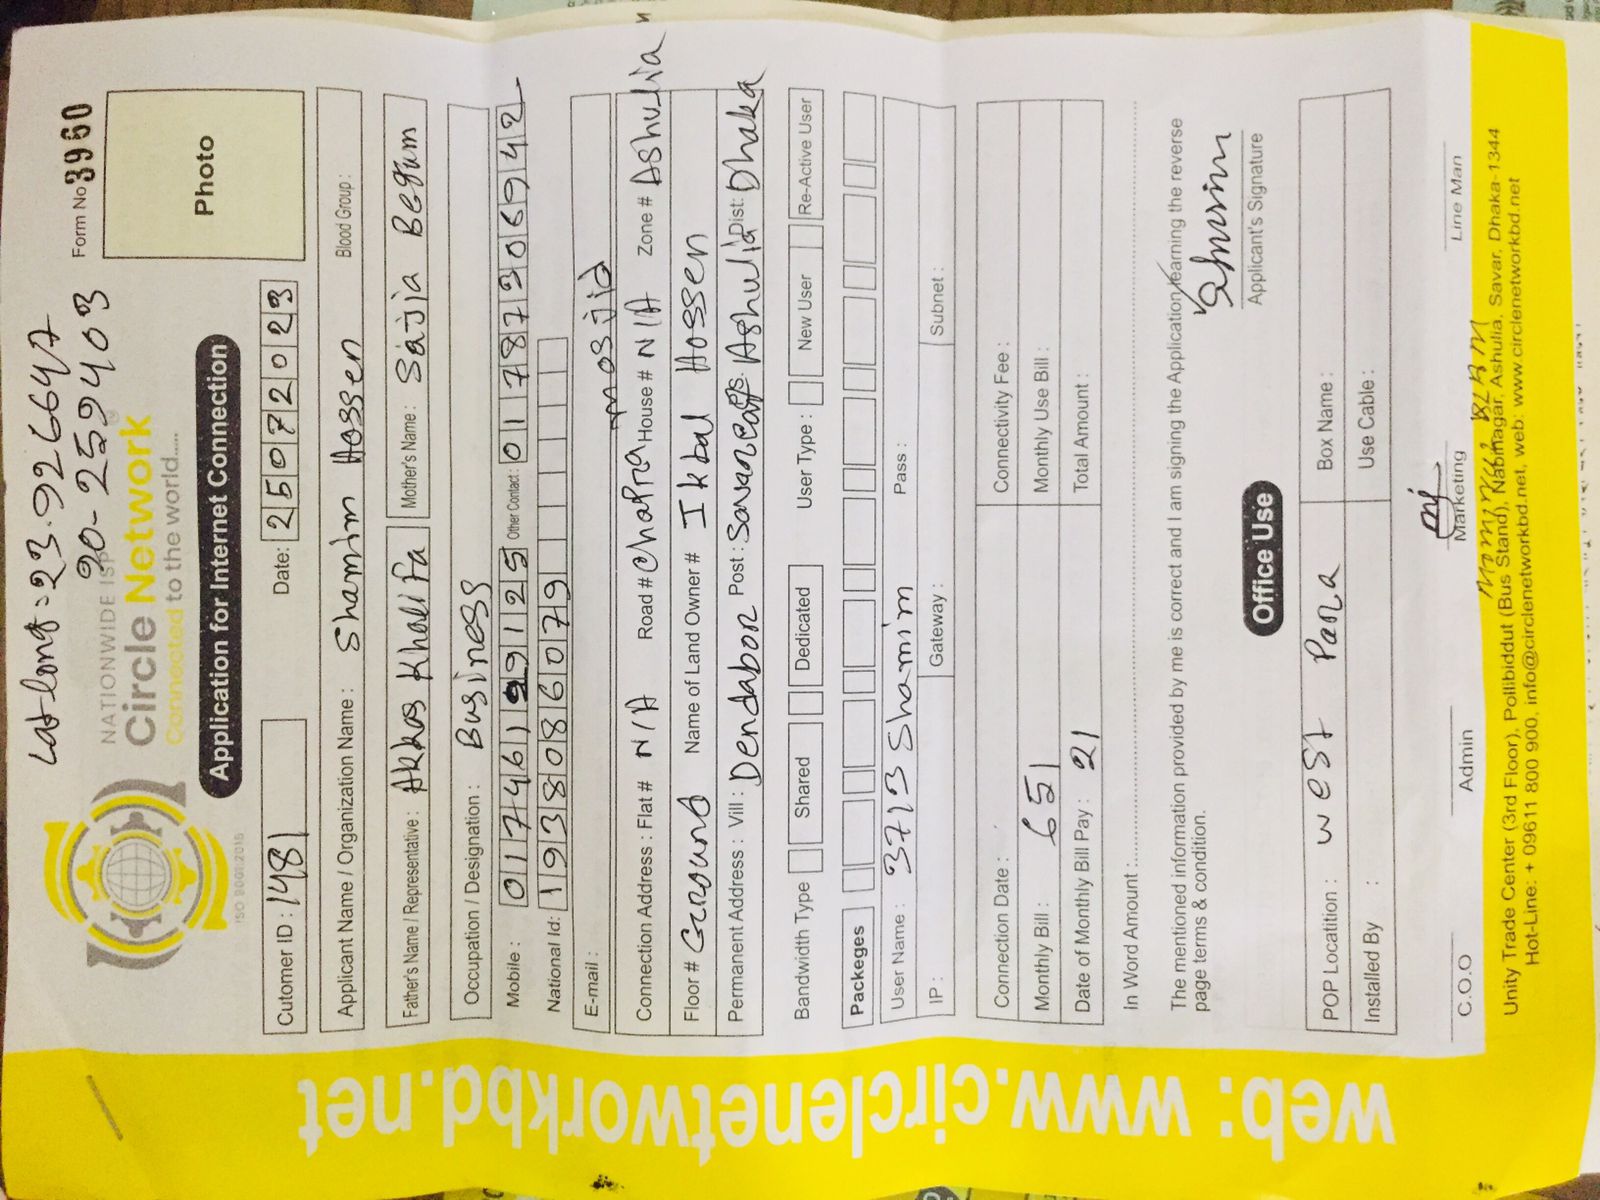 Lat-long = 23.926647
90-259403
Form No 3960
NATIONWIDE ISP
Circle Network
Connected to the world.....
ISO 9001:2015
Photo
Application for Internet Connection
Cutomer ID : 1481 Date: 25072023
Applicant Name / Organization Name : Shamim Hossen Blood Group :
Father's Name / Representative : Akkas Khalifa Mother's Name : Sajia Begum
Occupation / Designation : Business
Mobile : 01746199125 Other Contact: 01787306942
National Id: 1938086079
E-mail :
mosjid
Connection Address : Flat # N/A Road # Chapra House # N/A Zone # Ashulia
Floor # Ground Name of Land Owner # Ikbal Hossen
Permanent Address : Vill : Dendabor Post : Savar P.S. Ashulia Dist: Dhaka
Bandwidth Type Shared Dedicated User Type : New User Re-Active User
Packeges
User Name : 3713 Shamim Pass :
IP : Gateway : Subnet :
Connection Date : Connectivity Fee :
Monthly Bill : 651 Monthly Use Bill :
Date of Monthly Bill Pay : 21 Total Amount :
In Word Amount :
The mentioned information provided by me is correct and I am signing the Application learning the reverse
page terms & condition.
Shamim
Applicant's Signature
Office Use
POP Locatition : West Para Box Name :
Installed By : Use Cable :
C.O.O Admin Marketing Line Man
Unity Trade Center (3rd Floor), Pollibiddut (Bus Stand), Nabinagar, Ashulia, Savar, Dhaka-1344
Hot-Line: + 09611 800 900, info@circlenetworkbd.net, web: www.circlenetworkbd.net
web: www.circlenetworkbd.net